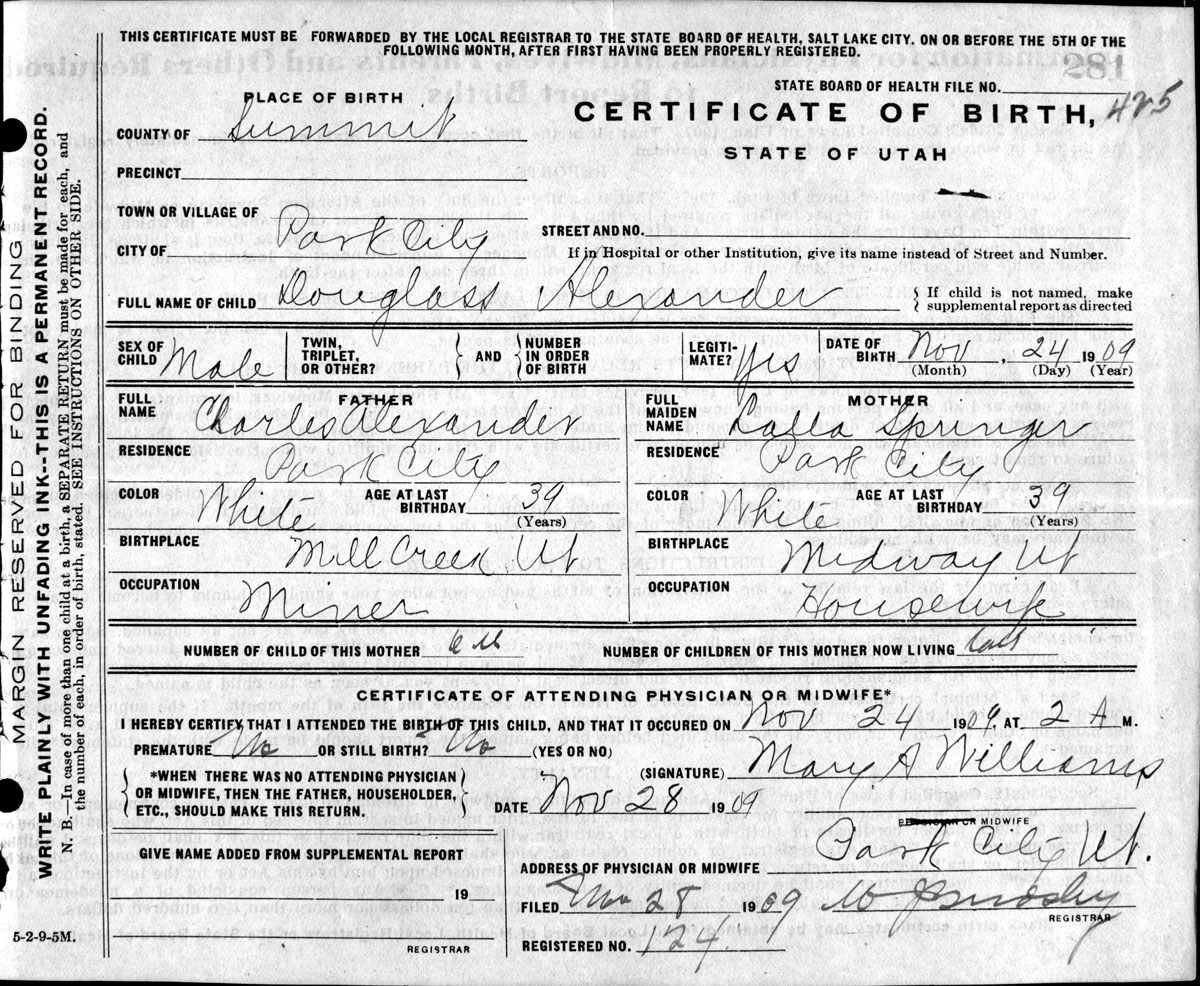 THIS CERTIFICATE MUST BE FORWARDED BY THE LOCAL REGISTRAR TO THE STATE BOARD OF HEALTH, SALT LAKE CITY, ON OR BEFORE THE 5TH OF THE
FOLLOWING MONTH, AFTER FIRST HAVING BEEN PROPERLY REGISTERED.
STATE BOARD OF HEALTH FILE NO.
PLACE OF BIRTH
CERTIFICATE OF BIRTH, 425
COUNTY OF Summit
STATE OF UTAH
PRECINCT
TOWN OR VILLAGE OF
STREET AND NO.
CITY OF Park City
If in Hospital or other Institution, give its name instead of Street and Number.
FULL NAME OF CHILD Douglass Alexander
If child is not named, make
supplemental report as directed
SEX OF CHILD Male
TWIN, TRIPLET, OR OTHER? AND NUMBER IN ORDER OF BIRTH
LEGITIMATE? Yes
DATE OF BIRTH Nov, 24 1909
(Month) (Day) (Year)
FATHER
FULL NAME Charles Alexander
RESIDENCE Park City
COLOR White AGE AT LAST BIRTHDAY 39
(Years)
BIRTHPLACE Mill Creek Ut
OCCUPATION Miner
MOTHER
FULL MAIDEN NAME Springer
RESIDENCE Park City
COLOR White AGE AT LAST BIRTHDAY 39
(Years)
BIRTHPLACE Midway Ut
OCCUPATION Housewife
NUMBER OF CHILD OF THIS MOTHER
NUMBER OF CHILDREN OF THIS MOTHER NOW LIVING
CERTIFICATE OF ATTENDING PHYSICIAN OR MIDWIFE*
I HEREBY CERTIFY THAT I ATTENDED THE BIRTH OF THIS CHILD, AND THAT IT OCCURED ON Nov 24 1909, AT 2 A M.
PREMATURE No OR STILL BIRTH? No (YES OR NO)
(SIGNATURE) Mary A Williams
*WHEN THERE WAS NO ATTENDING PHYSICIAN
OR MIDWIFE, THEN THE FATHER, HOUSEHOLDER,
ETC., SHOULD MAKE THIS RETURN.
DATE Nov 28 1909
PHYSICIAN OR MIDWIFE
GIVE NAME ADDED FROM SUPPLEMENTAL REPORT
ADDRESS OF PHYSICIAN OR MIDWIFE Park City Ut.
19
FILED Nov 28 1909
REGISTRAR
REGISTERED NO. 124
5-2-9-5M.
REGISTRAR
MARGIN RESERVED FOR BINDING
WRITE PLAINLY WITH UNFADING INK--THIS IS A PERMANENT RECORD.
N. B.—In case of more than one child at a birth, a SEPARATE RETURN must be made for each, and
the number of each, in order of birth, stated. SEE INSTRUCTIONS ON OTHER SIDE.